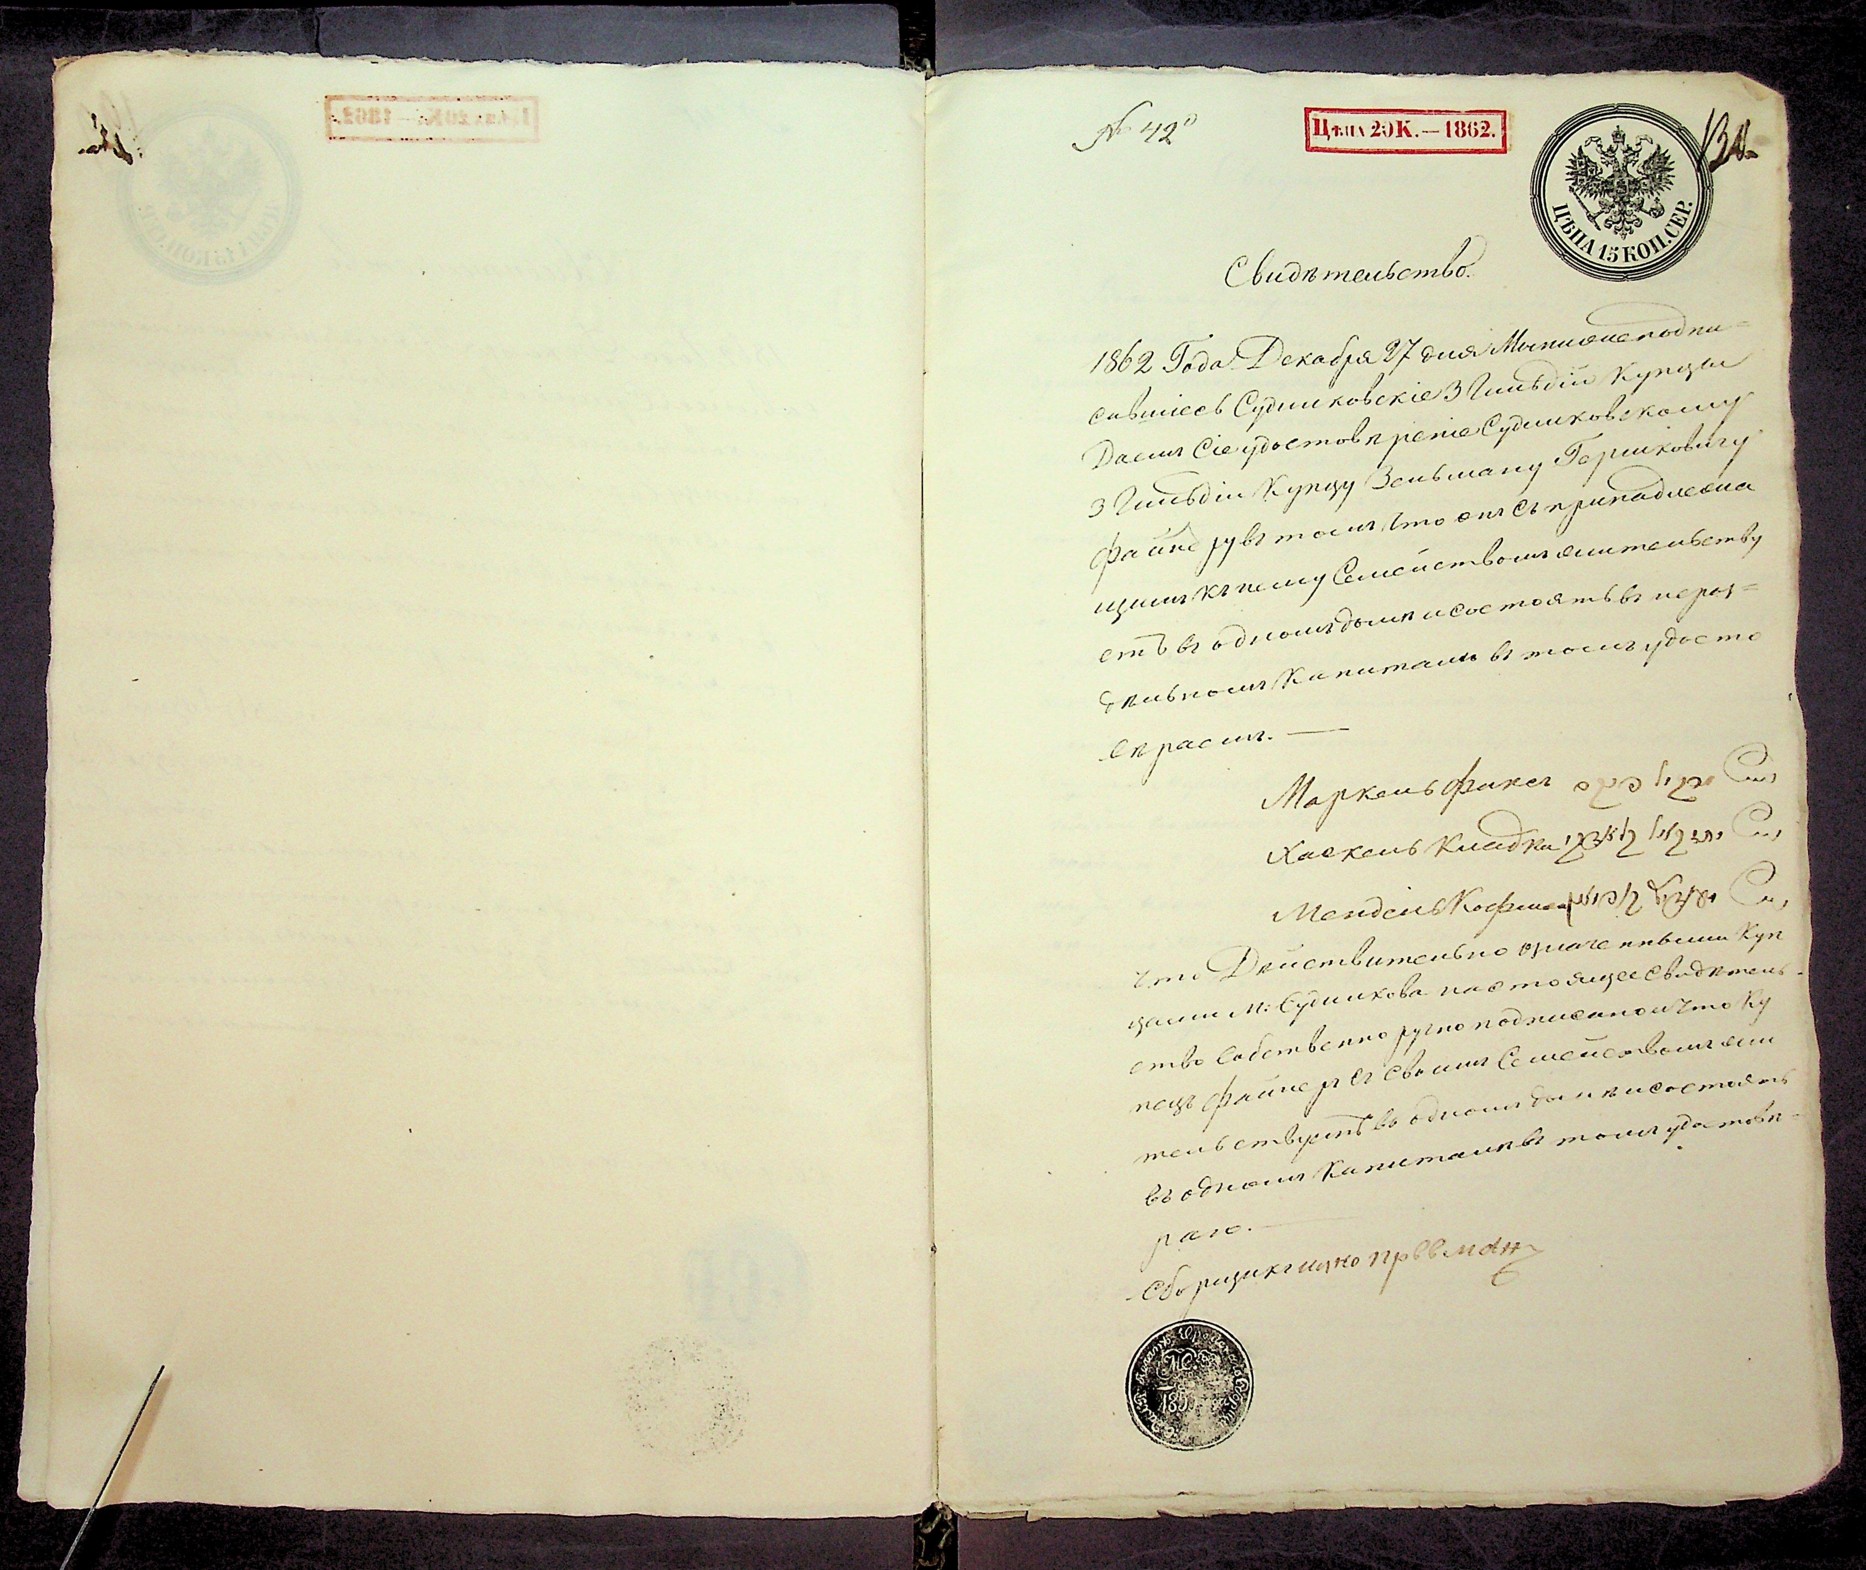 № 42
Цѣна 20 К.—1862.
ЦѢНА 15 КОП. СЕР.
Свидѣтельство.
1862 Года Декабря 27 дня Мы нижеподпи=
савшіесь Судилковскіе 3 Гильдіи Купцы
Даемъ Сіе удостовѣреніе Судилковскому
3 Гильдіи Купцу Зельману Гершковичу
Файнеру въ томъ, что онъ съ принадлежа
щимъ къ нему Семействомъ жительству
етъ въ одномъ домѣ и состоятъ въ нераз=
дѣльномъ Капиталѣ въ томъ удосто
вѣраемъ. —
Маркель Фукс
Хаскель Кладка
Мендель Кофман
Что Действительно означенными Куп
цами м: Судилкова настоящее свидѣтель-
ство собственноручно подписано и что Ку
пецъ Файнеръ съ своимъ Семействомъ жи
тельствуетъ въ одномъ домѣ и состоятъ
въ одномъ Капиталѣ въ томъ удостовѣ-
раю. —
Сборщикъ
185